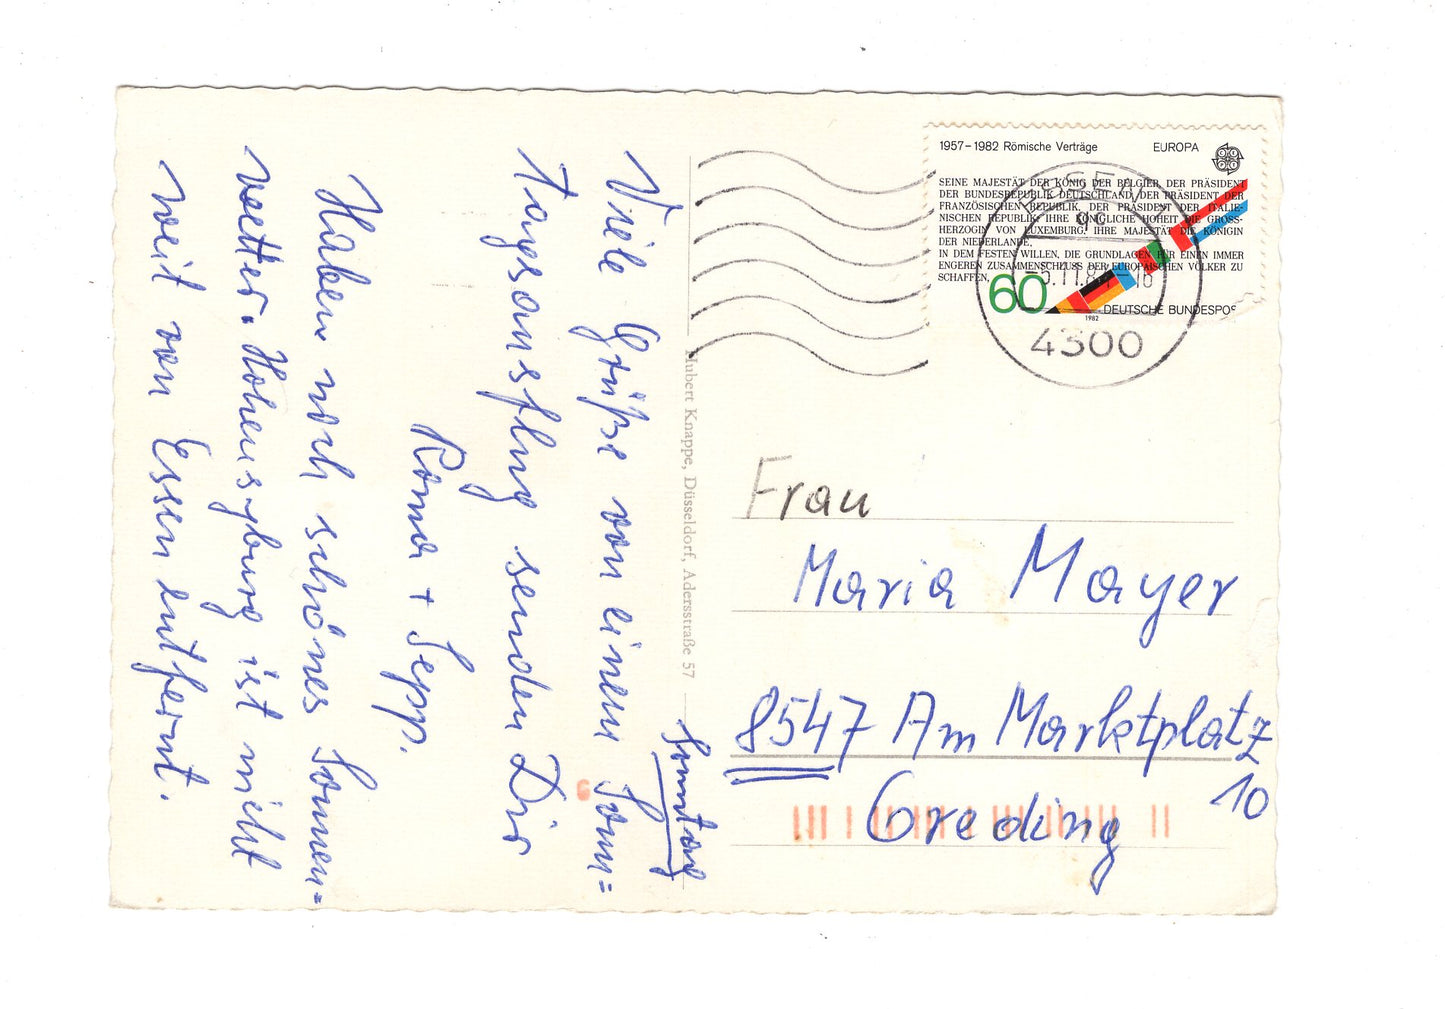 Sonntag
Viele Grüße von einem Sonn=
tagsausflug senden Dir
Roma + Sepp.
Haben noch schönes Sonnen=
wetter. Hohensyburg ist nicht
weit von Essen entfernt.
Hubert Knappe, Düsseldorf, Adersstraße 57
1957–1982 Römische Verträge EUROPA
SEINE MAJESTÄT DER KÖNIG DER BELGIER, DER PRÄSIDENT
DER BUNDESREPUBLIK DEUTSCHLAND, DER PRÄSIDENT DER
FRANZÖSISCHEN REPUBLIK, DER PRÄSIDENT DER ITALIE-
NISCHEN REPUBLIK, IHRE KÖNIGLICHE HOHEIT DIE GROSS-
HERZOGIN VON LUXEMBURG, IHRE MAJESTÄT DIE KÖNIGIN
DER NIEDERLANDE,
IN DEM FESTEN WILLEN, DIE GRUNDLAGEN FÜR EINEN IMMER
ENGEREN ZUSAMMENSCHLUSS DER EUROPÄISCHEN VÖLKER ZU
SCHAFFEN,
60
1982
DEUTSCHE BUNDESPOS
4300
Frau
Maria Mayer
8547 Am Marktplatz
10
Greding